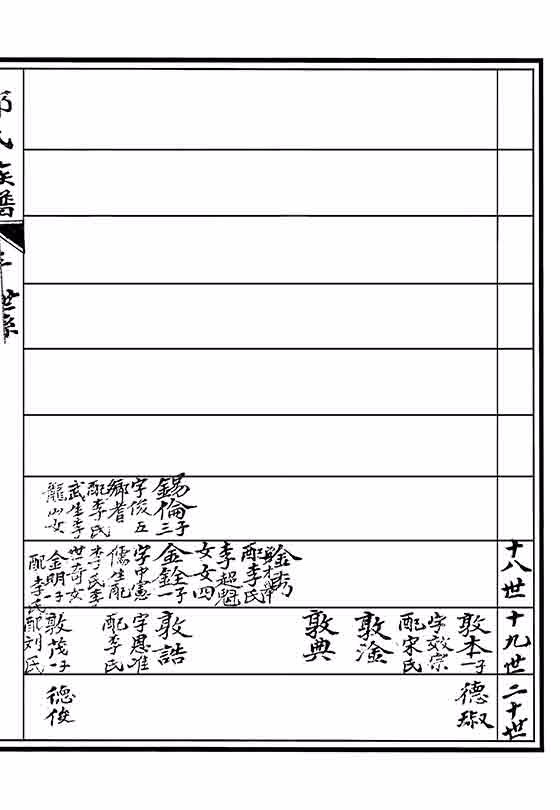 十八世
十九世
二十世
錫倫三子
字俊五
鄉耆
配李氏
武生李
龍山女
配李氏
李超魁
女女四
金銓一子
字中憲
儒生配
李氏李
世奇女
金明一子
配李氏
敦本一子
字效宗
配宋氏
敦淦
敦典
敦誥
字恩准
配李氏
敦茂一子
配刘氏
德琡
德俊
族譜
世系